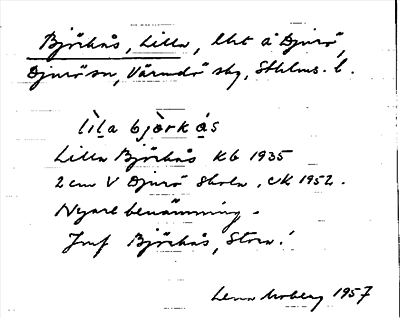 Björkås, Lilla, lht å Djurö,
Djurö sn, Värmdö skg, Sthlms l.
lìla bjòrkås
Lilla Björkås Kb 1935
2 cm V Djurö Skola, EK 1952.
Nyare benämning.
Jmf Björkås, Stora!
Lena Moberg 1957